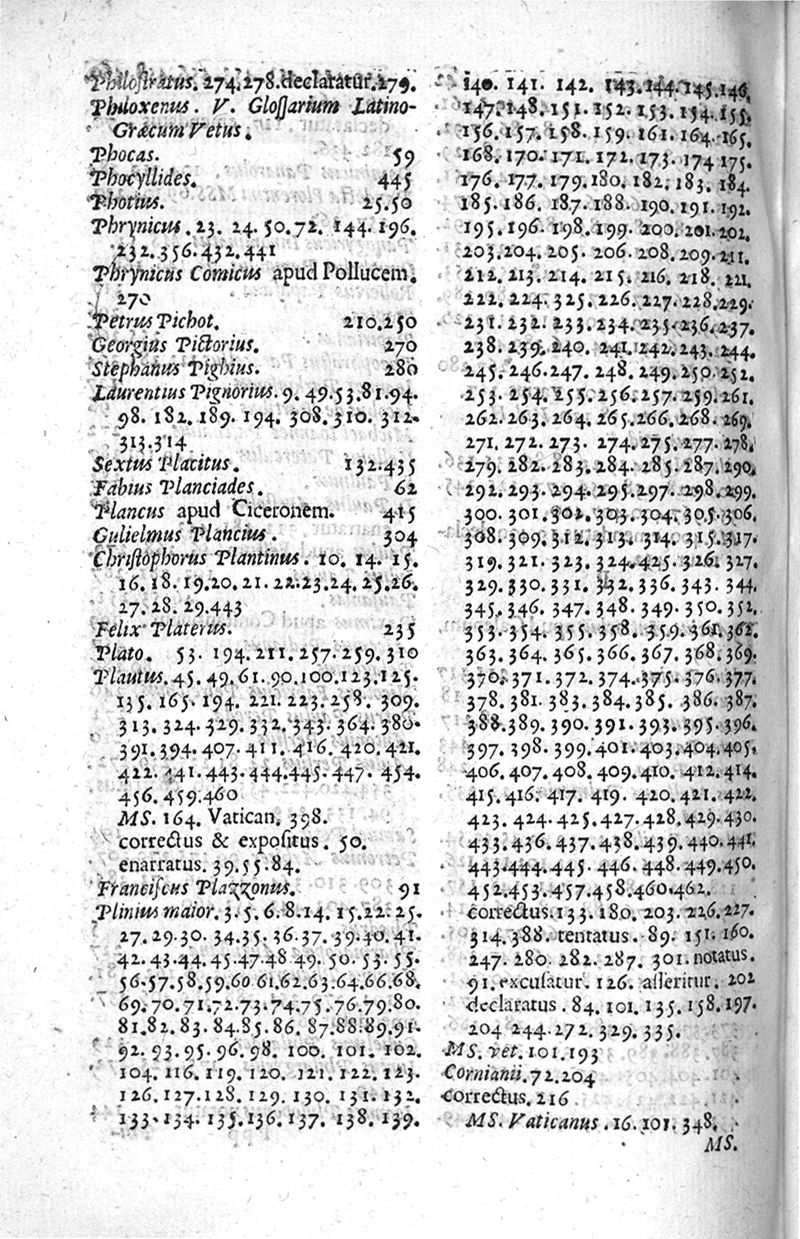 Philoſtratus. 274.278.declaratur.279.
Philoxenus. V. Gloſſarium Latino-
Græcum Vetus.
Phocas. 59
Phocyllides. 445
Photius. 25.50
Phrynicus. 23. 24. 50. 72. 144. 196.
232. 356. 432. 441
Phrynicus Comicus apud Pollucem.
270
Petrus Pichot. 210.250
Georgius Pictorius. 270
Stephanus Pighius. 280
Laurentius Pignorius. 9. 49. 53. 81. 94.
98. 182. 189. 194. 308. 310. 312.
313.314
Sextus Placitus. 132.435
Fabius Planciades. 62
Plancus apud Ciceronem. 415
Gulielmus Plancius. 304
Chriſtophorus Plantinus. 10. 14. 15.
16. 18. 19. 20. 21. 22. 23. 24. 25. 26.
27. 28. 29. 443
Felix Platerus. 235
Plato. 53. 194. 211. 257. 259. 310
Plautus. 45. 49. 61. 90. 100. 123. 125.
135. 165. 194. 221. 223. 258. 309.
313. 324. 329. 332. 343. 364. 380.
391. 394. 407. 411. 416. 420. 421.
422. 441. 443. 444. 445. 447. 454.
456. 459. 460
MS. 164. Vatican. 398.
correctus & expoſitus. 50.
enarratus. 39. 55. 84.
Franciſcus Plazzonus. 91
Plinius maior. 3. 5. 6. 8. 14. 15. 22. 25.
27. 29. 30. 34. 35. 36. 37. 39. 40. 41.
42. 43. 44. 45. 47. 48. 49. 50. 53. 55.
56. 57. 58. 59. 60 61. 62. 63. 64. 66. 68.
69. 70. 71. 72. 73. 74. 75. 76. 79. 80.
81. 82. 83. 84. 85. 86. 87. 88. 89. 91.
92. 93. 95. 96. 98. 100. 101. 102.
104. 116. 119. 120. 121. 122. 123.
126. 127. 128. 129. 130. 131. 132.
133. 134. 135. 136. 137. 138. 139.
140. 141. 142. 143. 144. 145. 146.
147. 148. 151. 152. 153. 154. 155.
156. 157. 158. 159. 161. 164. 165.
168. 170. 171. 172. 173. 174 175.
176. 177. 179. 180. 182. 183. 184.
185. 186. 187. 188. 190. 191. 192.
195. 196. 198. 199. 200. 201. 202.
203. 204. 205. 206. 208. 209. 211.
212. 213. 214. 215. 216. 218. 221.
222. 224. 325. 226. 227. 228. 229.
231. 232. 233. 234. 235. 236. 237.
238. 239. 240. 241. 242. 243. 244.
245. 246. 247. 248. 249. 250. 252.
253. 254. 255. 256. 257. 259. 261.
262. 263. 264. 265. 266. 268. 269.
271. 272. 273. 274. 275. 277. 278.
279. 282. 283. 284. 285. 287. 290.
292. 293. 294. 295. 297. 298. 299.
300. 301. 302. 303. 304. 305. 306.
308. 309. 312. 313. 314. 315. 317.
319. 321. 323. 324. 425. 326. 327.
329. 330. 331. 332. 336. 343. 344.
345. 346. 347. 348. 349. 350. 352.
353. 354. 355. 358. 359. 361. 362.
363. 364. 365. 366. 367. 368. 369.
370. 371. 372. 374. 375. 376. 377.
378. 381. 383. 384. 385. 386. 387.
388. 389. 390. 391. 393. 395. 396.
397. 398. 399. 401. 403. 404. 405.
406. 407. 408. 409. 410. 412. 414.
415. 416. 417. 419. 420. 421. 422.
423. 424. 425. 427. 428. 429. 430.
433. 436. 437. 438. 439. 440. 441.
443. 444. 445. 446. 448. 449. 450.
452. 453. 457. 458. 460. 462.
correctus. 133. 180. 203. 226. 227.
314. 388. tentatus. 89. 151. 160.
247. 280. 282. 287. 301. notatus.
91. excuſatur. 126. aſſeritur. 202
declaratus. 84. 101. 135. 158. 197.
204 244. 272. 329. 335.
MS. vet. 101.193
Cornianii. 72. 204
correctus. 216
MS. Vaticanus. 16. 101. 348.
MS.